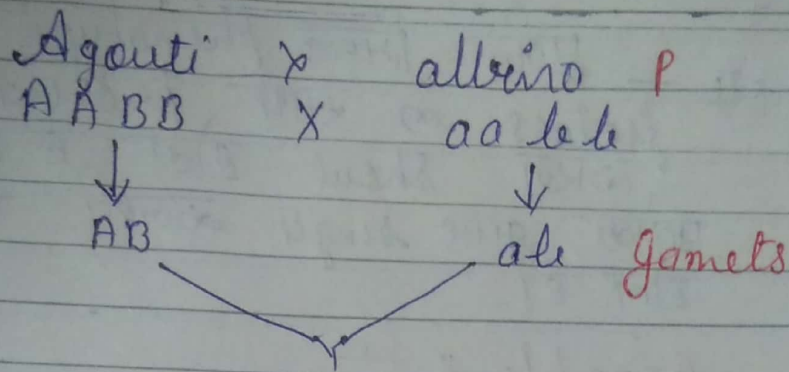 Agouti x albino P
AABB X aabb
↓ ↓
AB ab Gamets